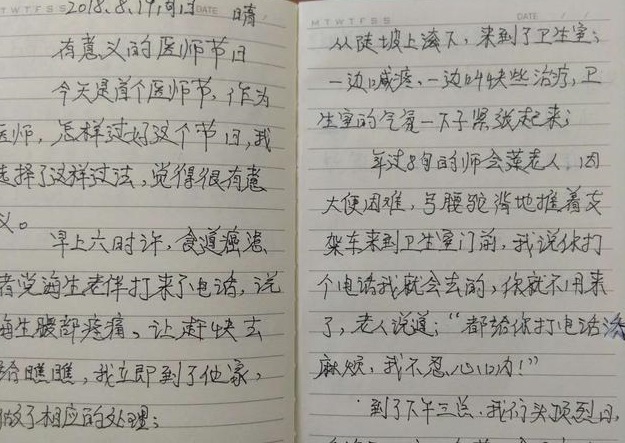 MTWTFSS
DATE
2018.8.19,周日
晴
有意义的医师节日
今天是首个医师节,作为
医师,怎样过好这个节日,我
选择了这样过法,觉得很有意
义。
早上六时许,食道癌患
者党海生老伴打来了电话,说
海生腹部疼痛、让赶快去
给瞧瞧,我立即到了他家,
做了相应的处理;
MTWTFSS
DATE / /
从陡坡上滚下,来到了卫生室;
一边喊疼、一边叫快些治疗,卫
生室的气氛一下子紧张起来;
年过8旬的师会菜老人,因
大便困难,弓腰驼背地推着支
架车来到卫生室门前,我说你打
个电话我就会去的,你就不用来
了,老人说道;“都给你打电话添
麻烦,我不忍心口内!”
到了下午三点.我们头顶烈日,